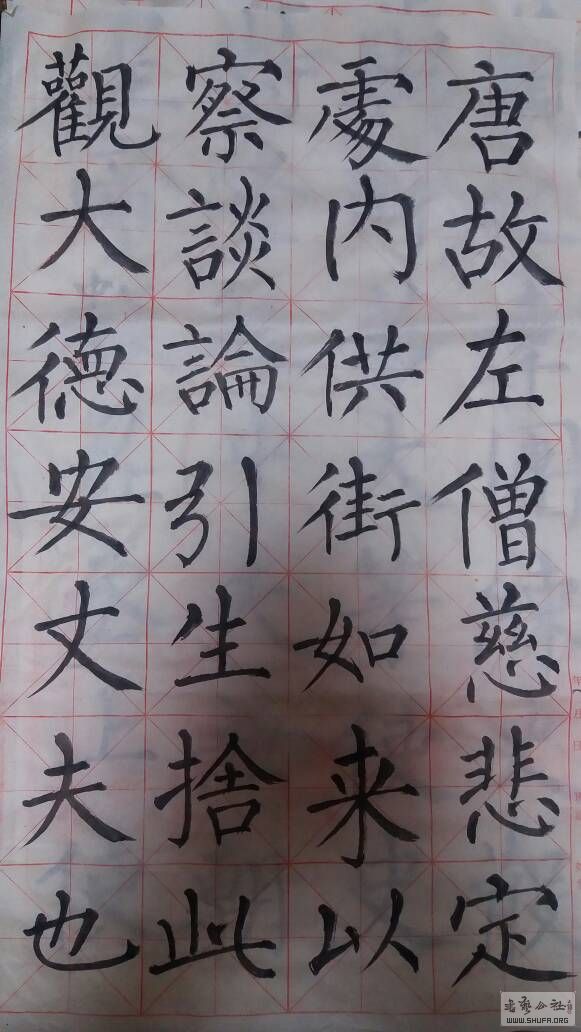 唐故左僧慈悲定
處内供街如来以
察談論引生捨此
觀大德安丈夫也
WWW.SHUFA.ORG